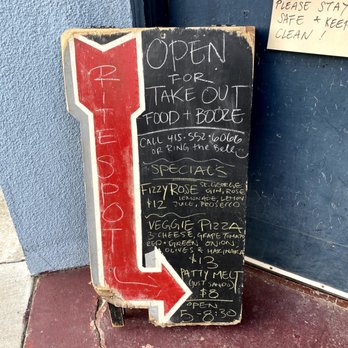 PLEASE STAY
SAFE + KEEP
CLEAN!
RITE SPOT
OPEN
FOR
TAKE OUT
FOOD + BOOZE
CALL 415.552.6066
OR RING the Bell
SPECIALS
FIZZY ROSE ST. GEORGE
GIN, ROSE
$12 LEMONADE, LEMON
JUICE, PROSECCO
VEGGIE PIZZA
3 CHEESE, GRAPE TOMATO
RED + GREEN ONION
OLIVES & MARINARA
$13
PATTY MELT
(JUST SAYING)
$8
OPEN
5-8:30